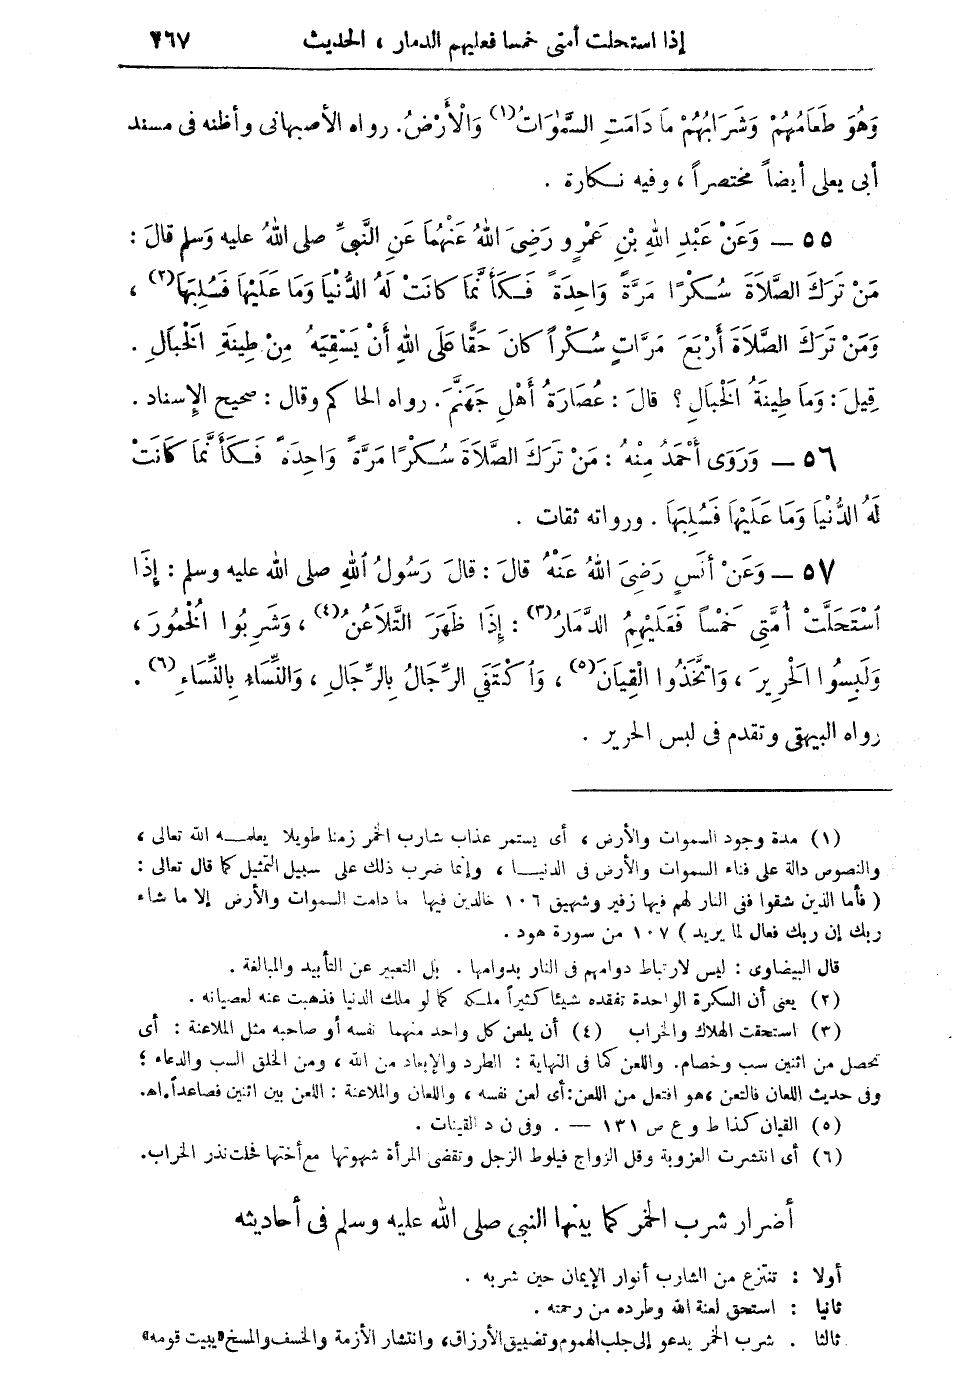 إذا استحلت أمتى خمسا فعليهم الدمار ، الحديث ٢٦٧
وَهُوَ طَعَامُهُمْ وَشَرَابُهُمْ مَا دَامَتِ السَّمٰوَاتُ(١) وَالْأَرْضُ. رواه الأصبهانى وأظنه فى مسند
أبى يعلى أيضاً مختصراً ، وفيه نـكارة .
٥٥ — وَعَنْ عَبْدِ اللهِ بْنِ عَمْرٍو رَضِىَ اللهُ عَنْهُمَا عَنِ النَّبِىِّ صلى اللهُ عليه وَسلم قالَ :
مَنْ تَرَكَ الصَّلَاةَ سُـكْرًا مَرَّةً وَاحِدَةً فَـكَأَنَّمَا كانَتْ لَهُ الدُّنْيَا وَمَا عَلَيْهَا فَسُلِبَهَا(٢) ،
وَمَنْ تَرَكَ الصَّلَاةَ أَرْبَعَ مَرَّاتٍ سُـكْراً كانَ حَقًّا عَلَى اللهِ أَنْ يَسْقِيَهُ مِنْ طِينَةِ الْخَبَالِ .
قِيلَ : وَمَا طِينَةُ الْخَبَالِ ؟ قالَ : عُصَارَةُ أَهْلِ جَهَنَّمَ. رواه الحاكم وقال : صحيح الإسناد .
٥٦ — وَرَوَى أَحْمَدُ مِنْهُ : مَنْ تَرَكَ الصَّلَاةَ سُـكْرًا مَرَّةً وَاحِدَةً فَـكَأَنَّمَا كَانَتْ
لَهُ الدُّنْيَا وَمَا عَلَيْهَا فَسُلِبَهَا . ورواته ثقات .
٥٧ — وَعَنْ أَنَسٍ رَضِىَ اللهُ عَنْهُ قالَ : قالَ رَسُولُ اللهِ صلى الله عليه وسلم : إِذَا
اسْتَحَلَّتْ أُمَّتِى خَمْساً فَعَلَيْهِمُ الدَّمَارُ(٣) : إِذَا ظَهَرَ التَّلَاعُنُ(٤) ، وَشَرِبُوا الْخُمُورَ ،
وَلَبِسُوا الْحَرِيرَ ، وَاتَّخَذُوا الْقِيَانَ(٥) ، وَاكْتَفَى الرِّجَالُ بِالرِّجَالِ ، وَالنِّسَاءُ بِالنِّسَاءِ(٦) .
رواه البيهقى وتقدم فى لبس الحرير .
(١) مدة وجود السموات والأرض ، أى يستمر عذاب شارب الخمر زمنا طويلا يعلمـه الله تعالى ،
والنصوص دالة على فناء السموات والأرض فى الدنيـا ، وإنما ضرب ذلك على سبيل التمثيل كما قال تعالى :
( فأما الذين شقوا ففى النار لهم فيها زفير وشهيق ١٠٦ خالدين فيها ما دامت السموات والأرض إلا ما شاء
ربك إن ربك فعال لما يريد ) ١٠٧ من سورة هود .
قال البيضاوى : ليس لارتباط دوامهم فى النار بدوامها . بل التعبير عن التأبيد والمبالغة .
(٢) يعنى أن السكرة الواحدة تفقده شيئا كثيراً ملـكه كما لو ملك الدنيا فذهبت عنه لعصيانه .
(٣) استحقت الهلاك والخراب (٤) أن يلعن كل واحد منهما نفسه أو صاحبه مثل الملاعنة : أى
تحصل من اثنين سب وخصام. واللعن كما فى النهاية : الطرد والإبعاد من الله ، ومن الخلق السب والدعاء ؛
وفى حديث اللعان فالتعن ،هو افتعل من اللعن: أى لعن نفسه ، واللعان والملاعنة : اللعن بين اثنين فصاعداً.اهـ.
(٥) القيان كذا ط و ع ص ١٣١ — . وفى ن د القينات .
(٦) أى انتشرت العزوبة وقل الزواج فيلوط الرجل وتقضى المرأة شهوتها مع أختها فحلت نذر الخراب.
أضرار شرب الخمر كما بينها النبى صلى الله عليه وسلم فى أحاديثه
أولا : تنتزع من الشارب أنوار الإيمان حين شربه .
ثانيا : استحق لعنة الله وطرده من رحمته .
ثالثا . شرب الخمر يدعو إلى جلب الهموم وتضييق الأرزاق، وانتشار الأزمة والخسف والمسخ «يبيت قومه»